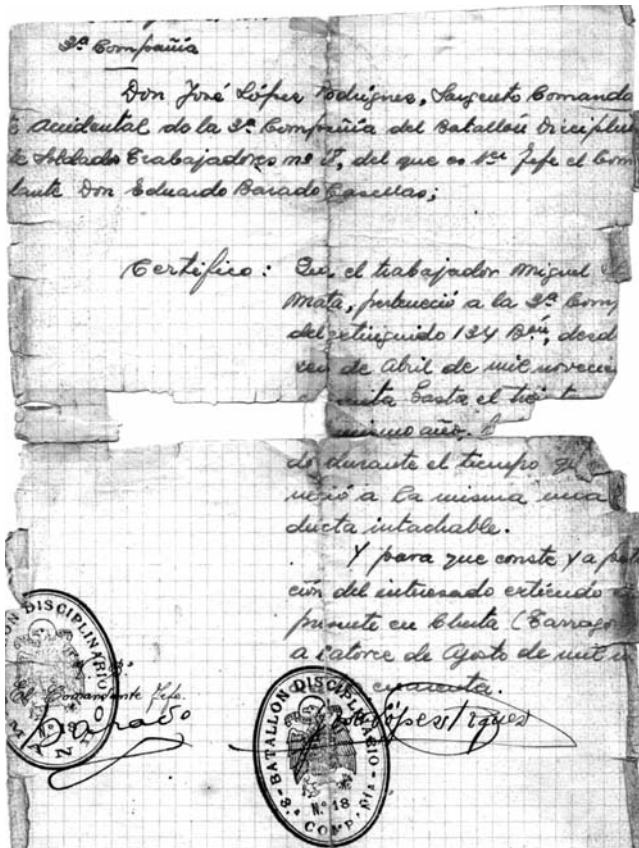 3ª Compañía
Don José López Rodrignes, Sargento Comanda
accidental de la 3ª Compañía del Batallón Diciplin
de Soldados Trabajadores nº, del que es 1er Jefe el Com
dante Don Eduardo Barado Casellas;
Certifico: Que el trabajador Miguel
Mata, perteneció a la 3ª Comp
del extinguido 134 Bón, desd
de Abril de mil novecien
hasta el
mismo año.
do durante el tiempo
neció a la misma una
ducta intachable.
Y para que conste y a peti
ción del interesado extiendo
presente en Cherta (Tarrago
a catorce de Agosto de mil
cuarenta.
DISCIPLINARIO
El Comandante Jefe.
Barado
BATALLON DISCIPLINARIO
Nº 18
3ª COMPAÑIA